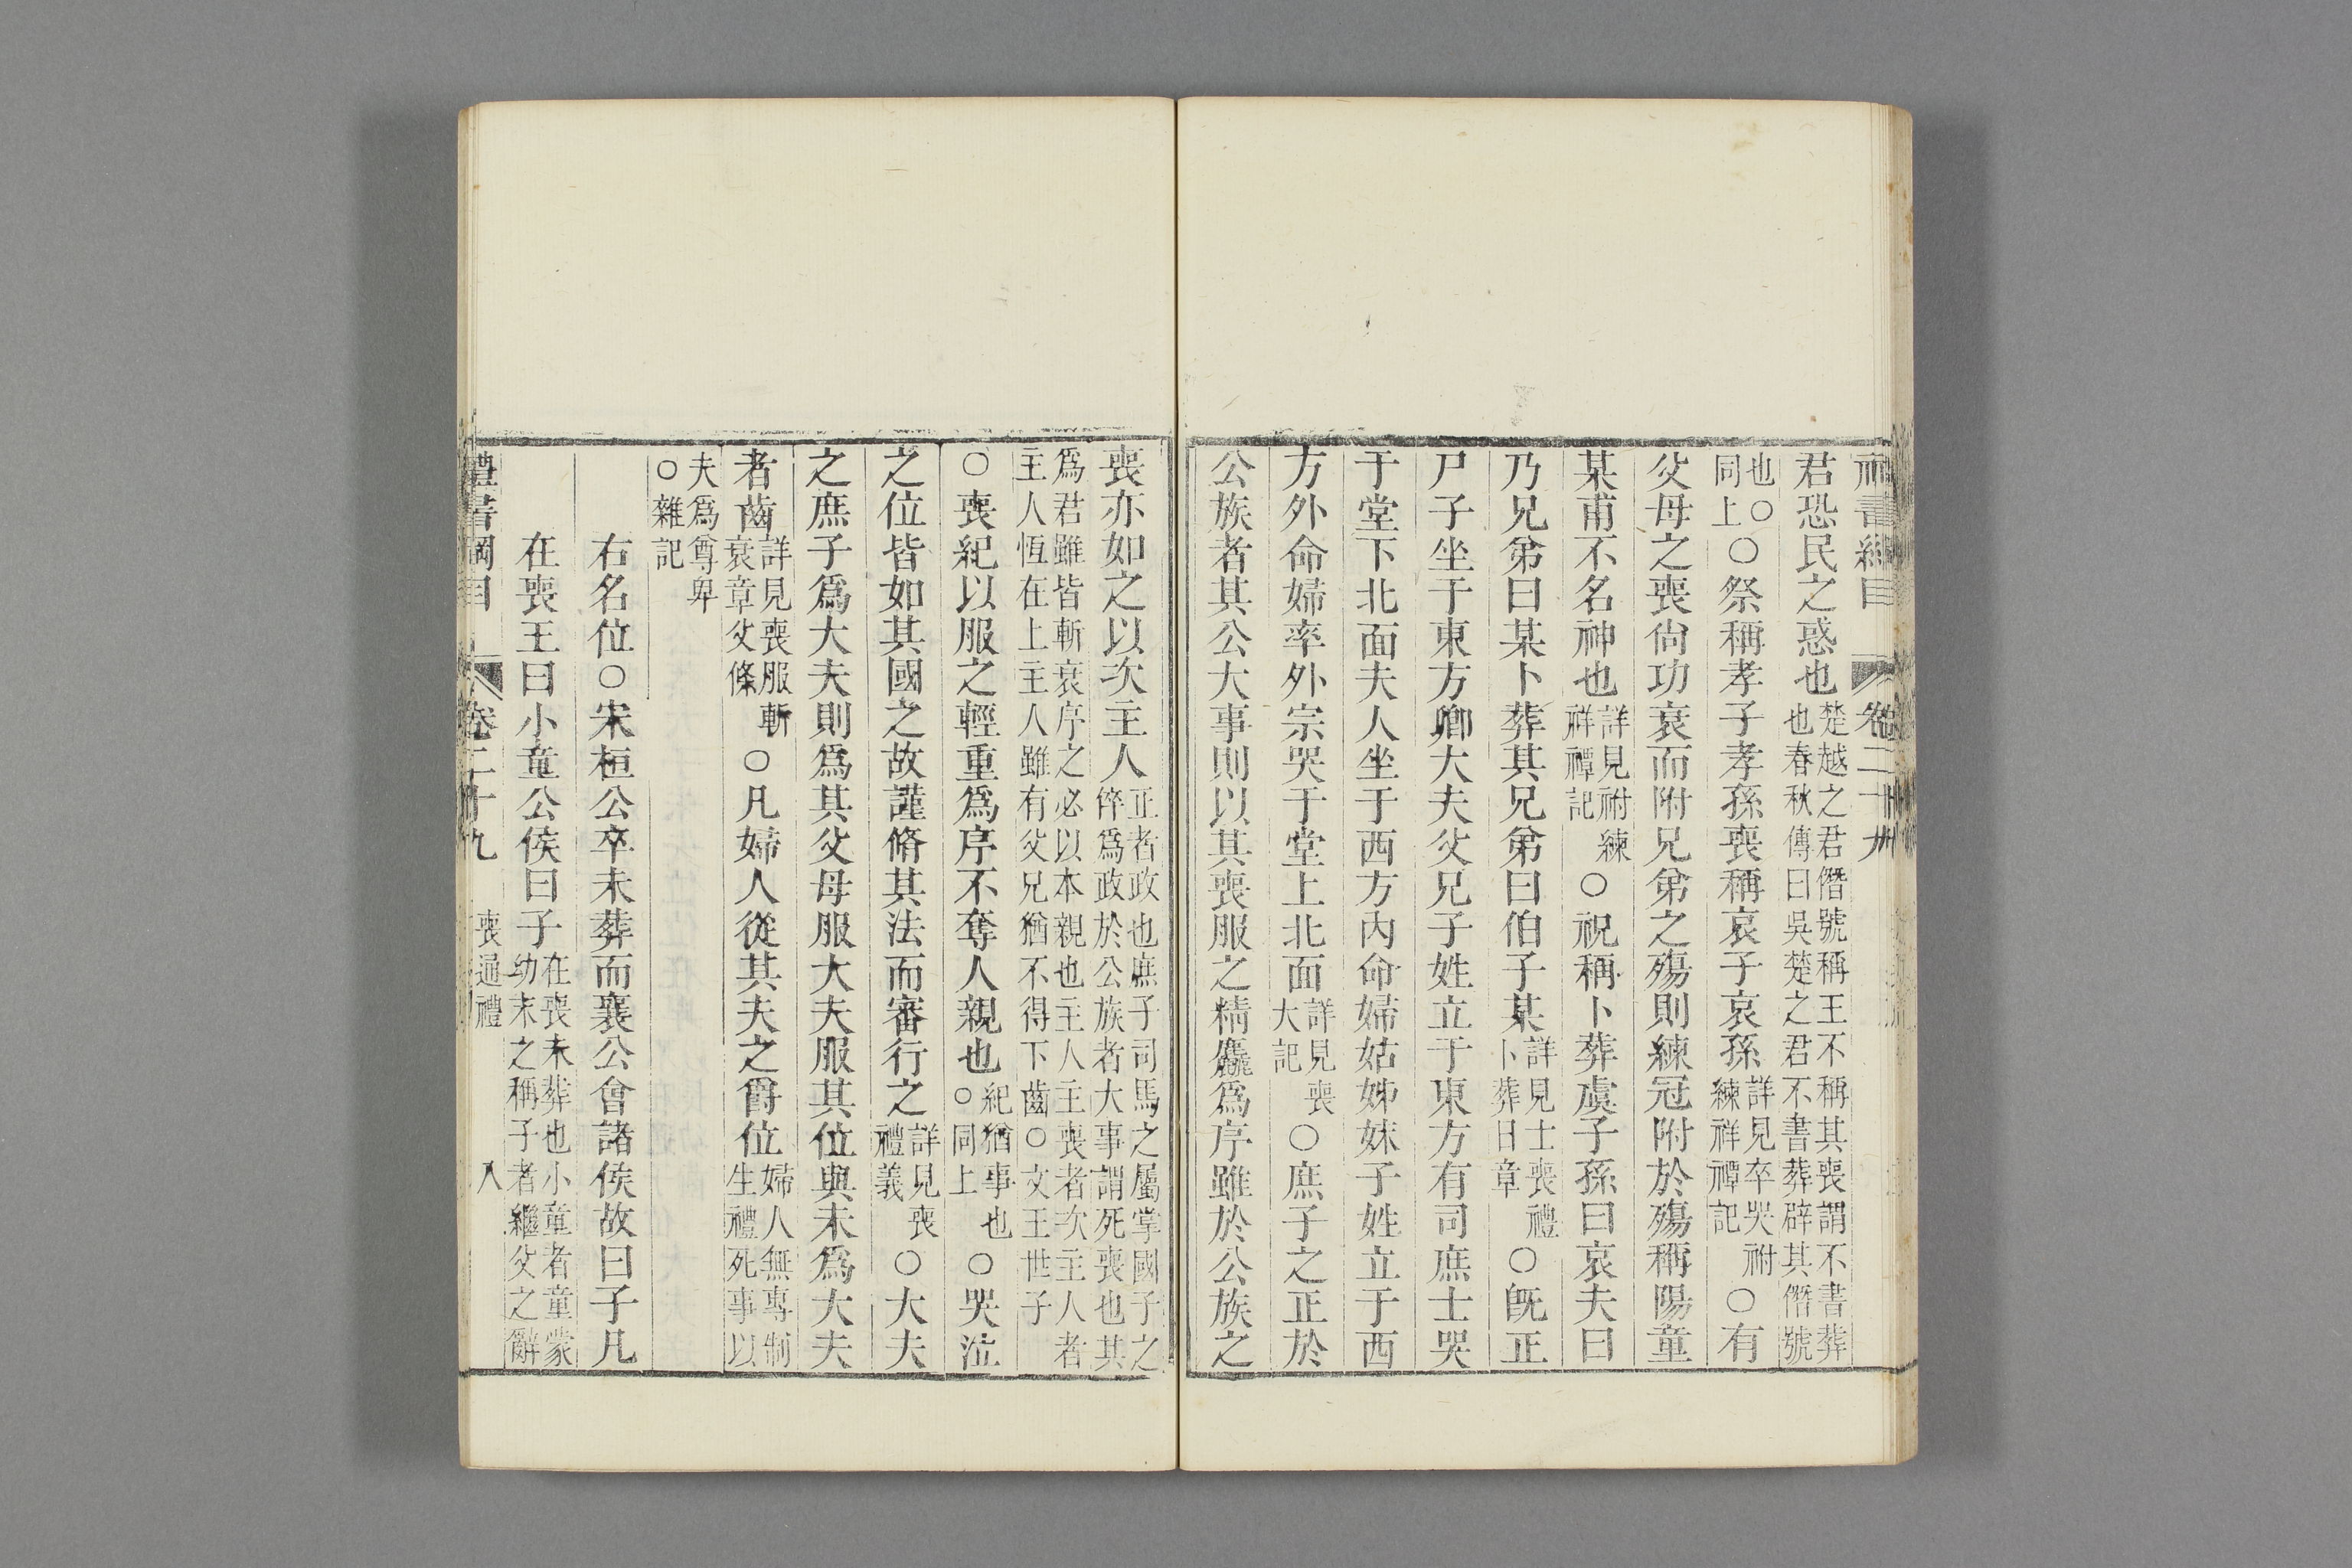 禮書綱目 卷二十九
君恐民之惑也楚越之君僭號稱王不稱其喪謂不書葬也春秋傳曰吳楚之君不書葬辟其僭號
也○同上○祭稱孝子孝孫喪稱哀子哀孫詳見卒哭祔練祥禫記○有
父母之喪尙功衰而附兄弟之殤則練冠附於殤稱陽童
某甫不名神也詳見祔練祥禫記○祝稱卜葬虞子孫曰哀夫曰
乃兄弟曰某卜葬其兄弟曰伯子某詳見士喪禮卜葬日章○旣正
尸子坐于東方卿大夫父兄子姓立于東方有司庶士哭
于堂下北面夫人坐于西方內命婦姑姊妹子姓立于西
方外命婦率外宗哭于堂上北面詳見喪大記○庶子之正於
公族者其公大事則以其喪服之精麤爲序雖於公族之
喪亦如之以次主人正者政也庶子司馬之屬掌國子之倅爲政於公族者大事謂死喪也其
爲君雖皆斬衰序之必以本親也主人主喪者次主人者主人恆在上主人雖有父兄猶不得下齒○文王世子
○喪紀以服之輕重爲序不奪人親也紀猶事也○同上○哭泣
之位皆如其國之故謹脩其法而審行之詳見喪禮義○大夫
之庶子爲大夫則爲其父母服大夫服其位與未爲大夫
者齒詳見喪服斬衰章父條○凡婦人從其夫之爵位婦人無專制生禮死事以
夫爲尊卑○雜記
右名位○宋桓公卒未葬而襄公會諸侯故曰子凡
在喪王曰小童公侯曰子在喪未葬也小童者童蒙幼末之稱子者繼父之辭
禮書綱目 卷二十九 喪通禮 八